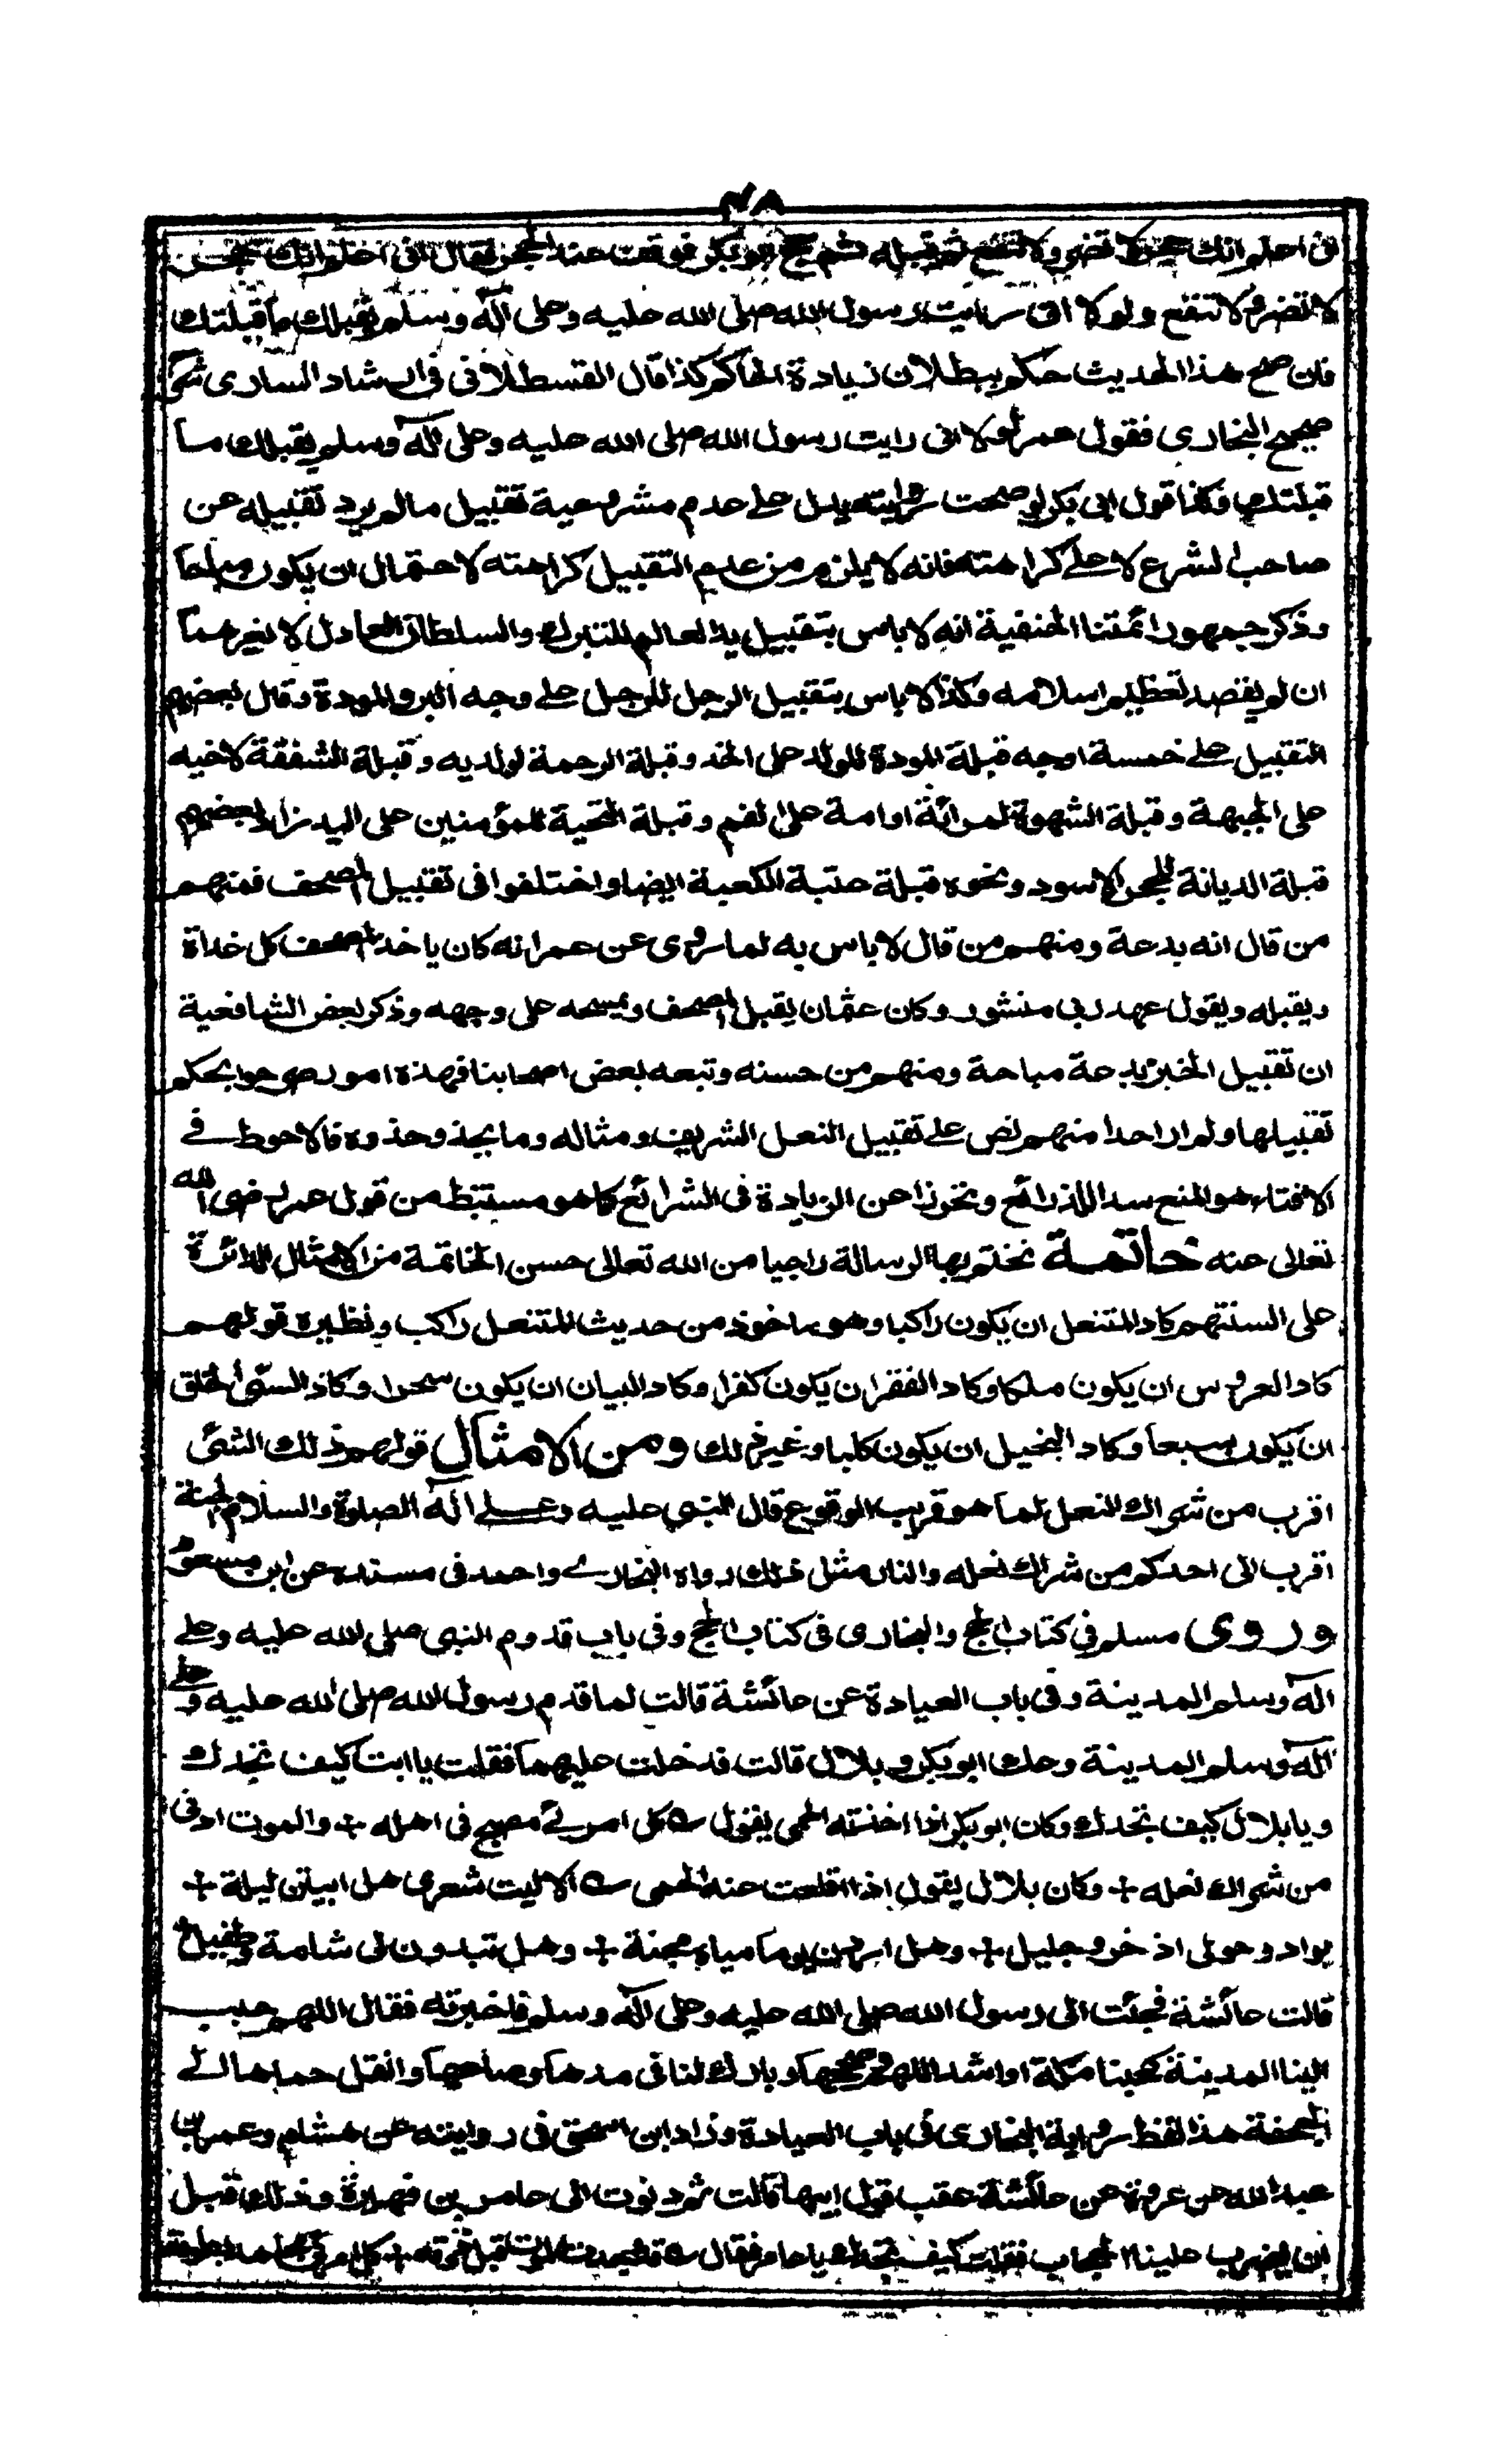 ٢٨
انى اعلم انك حجر لا تضر ولا تنفع ثم قبله ثم حج ابو بكر فوقف عند الحجر فقال انى اعلم انك حجر
لا تضر ولا تنفع ولو لا انى رايت رسول الله صلى الله عليه وعلى آله وسلم يقبلك ما قبلتك
فان صح هذا الحديث حكم ببطلان زيادة الحاكم كذا قال القسطلانى فى ارشاد السارى شرح
صحيح البخارى فقول عمر لو لا انى رايت رسول الله صلى الله عليه وعلى آله وسلم يقبلك ما
قبلتك وكذا قول ابى بكر لو صحت روايته يدل على عدم مشروعية تقبيل ما لم يرد تقبيله عن
صاحب الشرع لا على كراهته فانه لا يلزم من عدم التقبيل كراهته لاحتمال ان يكون مباحا
وذكر جمهور ائمتنا الحنفية انه لا باس بتقبيل يد العالم للتبرك والسلطان العادل لا لغيرهما
ان لم يقصد تعظيم اسلامه وكذا لا باس بتقبيل الرجل للرجل على وجه البر والمودة وقال بعضهم
التقبيل على خمسة اوجه قبلة المودة للولد على الخد وقبلة الرحمة لولديه وقبلة الشفقة لاخيه
على الجبهة وقبلة الشهوة لمرأته او امة على الفم وقبلة التحية للمؤمنين على اليد زاد بعضهم
قبلة الديانة للحجر الاسود ونحوه قبلة عتبة الكعبة ايضا واختلفوا فى تقبيل المصحف فمنهم
من قال انه بدعة ومنهم من قال لا باس به لما روى عن عمر انه كان ياخذ المصحف كل غداة
ويقبله ويقول عهد ربى منشور وكان عثمان يقبل المصحف ويمسحه على وجهه وذكر بعض الشافعية
ان تقبيل الخبز بدعة مباحة ومنهم من حسنه وتبعه بعض اصحابنا فهذه امور صرحوا بحكم
تقبيلها ولم ار احدا منهم نص على تقبيل النعل الشريف ومثاله وما يحذ وحذوه فالاحوط فے
الافتاء هو المنع سدا للذرائع وتحرزا عن الزيادة فى الشرائع كما هو مستنبط من قول عمر رضى الله
تعالى عنه خاتمة نختم بها الرسالة راجيا من الله تعالى حسن الخاتمة من الامثال الدائرة
على السنتهم كاد المتنعل ان يكون راكبا وهو ماخوذ من حديث المتنعل راكب ونظيره قولهم
كاد العروس ان يكون ملكا وكاد الفقر ان يكون كفرا وكاد البيان ان يكون سحرا وكاد السئ الخلق
ان يكون سبعا وكاد البخيل ان يكون كلبا وغير ذلك ومن الامثال قولهم ذلك الشئ
اقرب من شراك النعل لما هو قريب الوقوع قال النبى عليه وعلى آله الصلوة والسلام الجنة
اقرب الى احدكم من شراك نعله والنار مثل ذلك رواه البخارے واحمد فى مسنده عن ابن مسعود
وروى مسلم فى كتاب الحج والبخارى فى كتاب الحج وفى باب قدوم النبى صلى الله عليه وعلى
آله وسلم المدينة وفى باب العيادة عن عائشة قالت لما قدم رسول الله صلى الله عليه وعلى
آله وسلم المدينة وعك ابو بكر وبلال قالت فدخلت عليهما فقلت يا ابت كيف تجدك
ويا بلال كيف تجدك وكان ابو بكر اذا اخذته الحمى يقول ؎ كل امرئ مصبح فى اهله + والموت ادنى
من شراك نعله + وكان بلال يقول اذا اقلعت عنه الحمى ؎ الا ليت شعرى هل ابيتن ليلة +
بواد وحولى اذخر وجليل + وهل اردن يوما مياه مجنة + وهل تبدون لى شامة وطفيل
قالت عائشة فجئت الى رسول الله صلى الله عليه وعلى آله وسلم فاخبرته فقال اللهم حبب
الينا المدينة كحبنا مكة او اشد اللهم وصححها وبارك لنا فى مدها وصاعها وانقل حماها الے
الجحفة هذا لفظ رواية البخارى فى باب العيادة وزاد ابن اسحق فى روايته عن هشام وعمر بن
عبد الله عن عروة عن عائشة عقب قول ابيها قالت ثم دنوت الى عامر بن فهيرة وذلك قبل
ان يضرب علينا الحجاب فقلت كيف تجدك يا عامر فقال ؎ قد وجدت الموت قبل ذوقه + كل امرئ مجاهد بطوقه